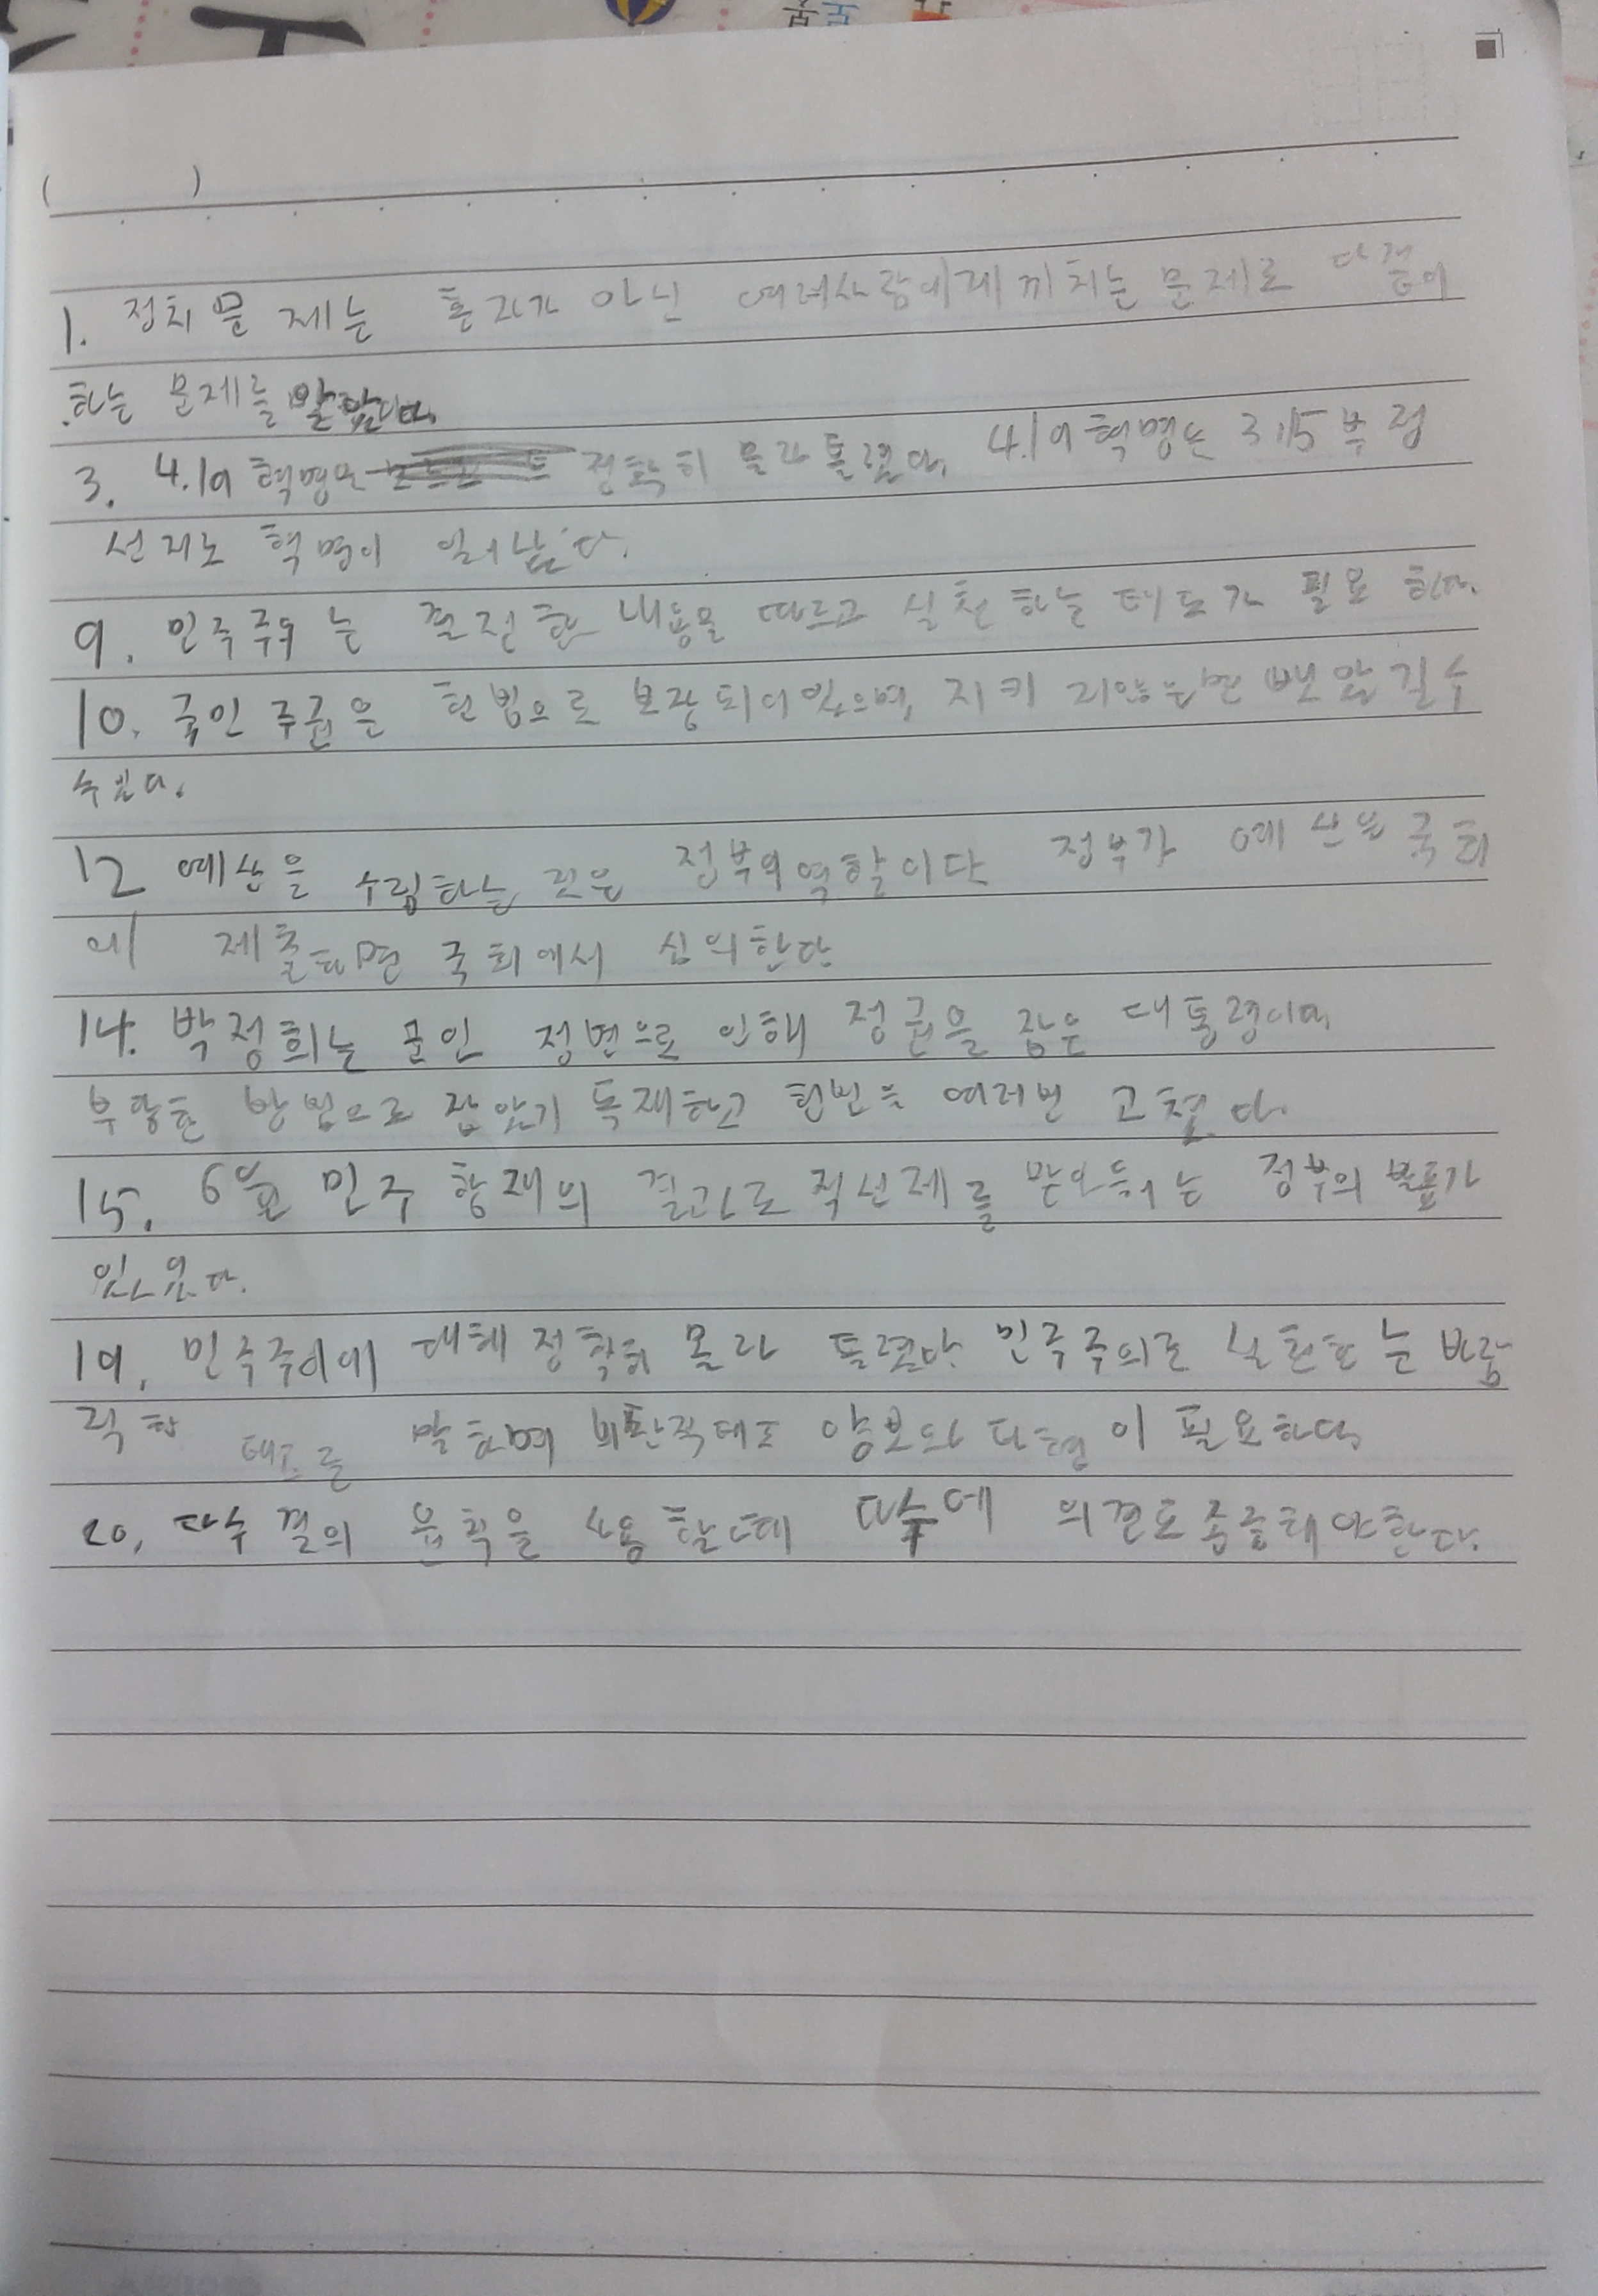 ( )
1. 정치 문제는 혼자가 아닌 여러사람에게 끼치는 문제로 다 같이
하는 문제를
3. 4.19 혁명은 정확히 몰라 틀렸다. 4.19 혁명은 3.15 부정
선거로 혁명이 일어났다.
9. 민주주의는 결정한 내용을 따르고 실천하는 태도가 필요하다.
10. 국민 주권은 헌법으로 보장되어있으며, 지키지않으면 빼앗길수
수있다.
12 예산을 수립하는 것은 정부의역할이다 정부가 예산을 국회
에 제출하면 국회에서 심의한다
14. 박정희는 군인 정변으로 인해 정권을 잡은 대통령이며
부당한 방법으로 잡았기 독재하고 헌법을 여러번 고쳤다.
15. 6월 민주 항쟁의 결과로 직선제를 받아들이는 정부의 발표가
있었다.
19. 민주주의에 대해 정확히 몰라 틀렸다. 민주주의를 실천하는 바람
직한 태도를 말하며 비판적태도 양보와 타협이 필요하다.
20. 다수결의 원칙을 사용할때 다수에 의견도 존중해야한다.